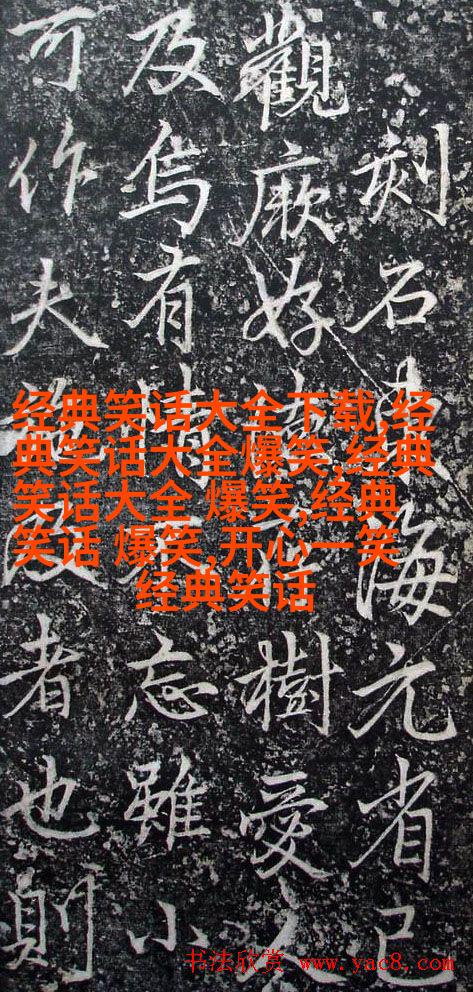 刻石海元省己
觀厥好樹愛
及烏有情忘雖小
可作夫者也則
经典笑话大全下载,经
典笑话大全爆笑,经典
笑话大全 爆笑,经典
笑话 爆笑,开心一笑
经典笑话
书法欣赏 www.yac8.com